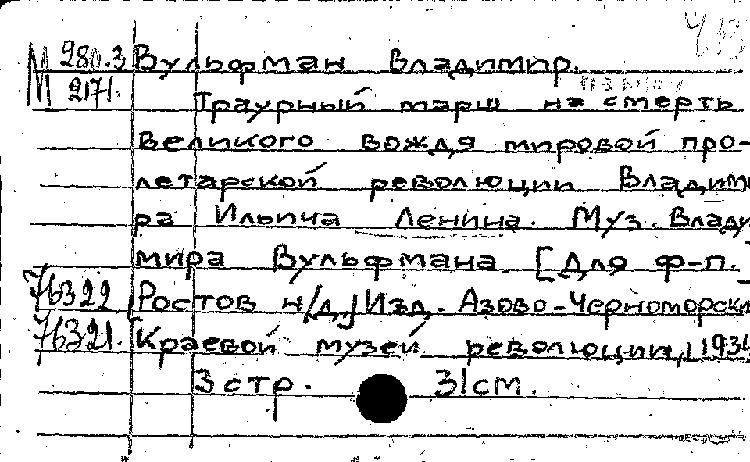 М 280.3 Вульфман Владимир.
2171. Траурный марш на смерть
великого вождя мировой про-
летарской революции Владими
ра Ильича Ленина. Муз. Влади
мира Вульфмана. [Для ф-п.]
76322 [Ростов н/Д.] Изд. Азово-Черноморски
76321. Краевой музей революции, 193
3 стр. 31 см.